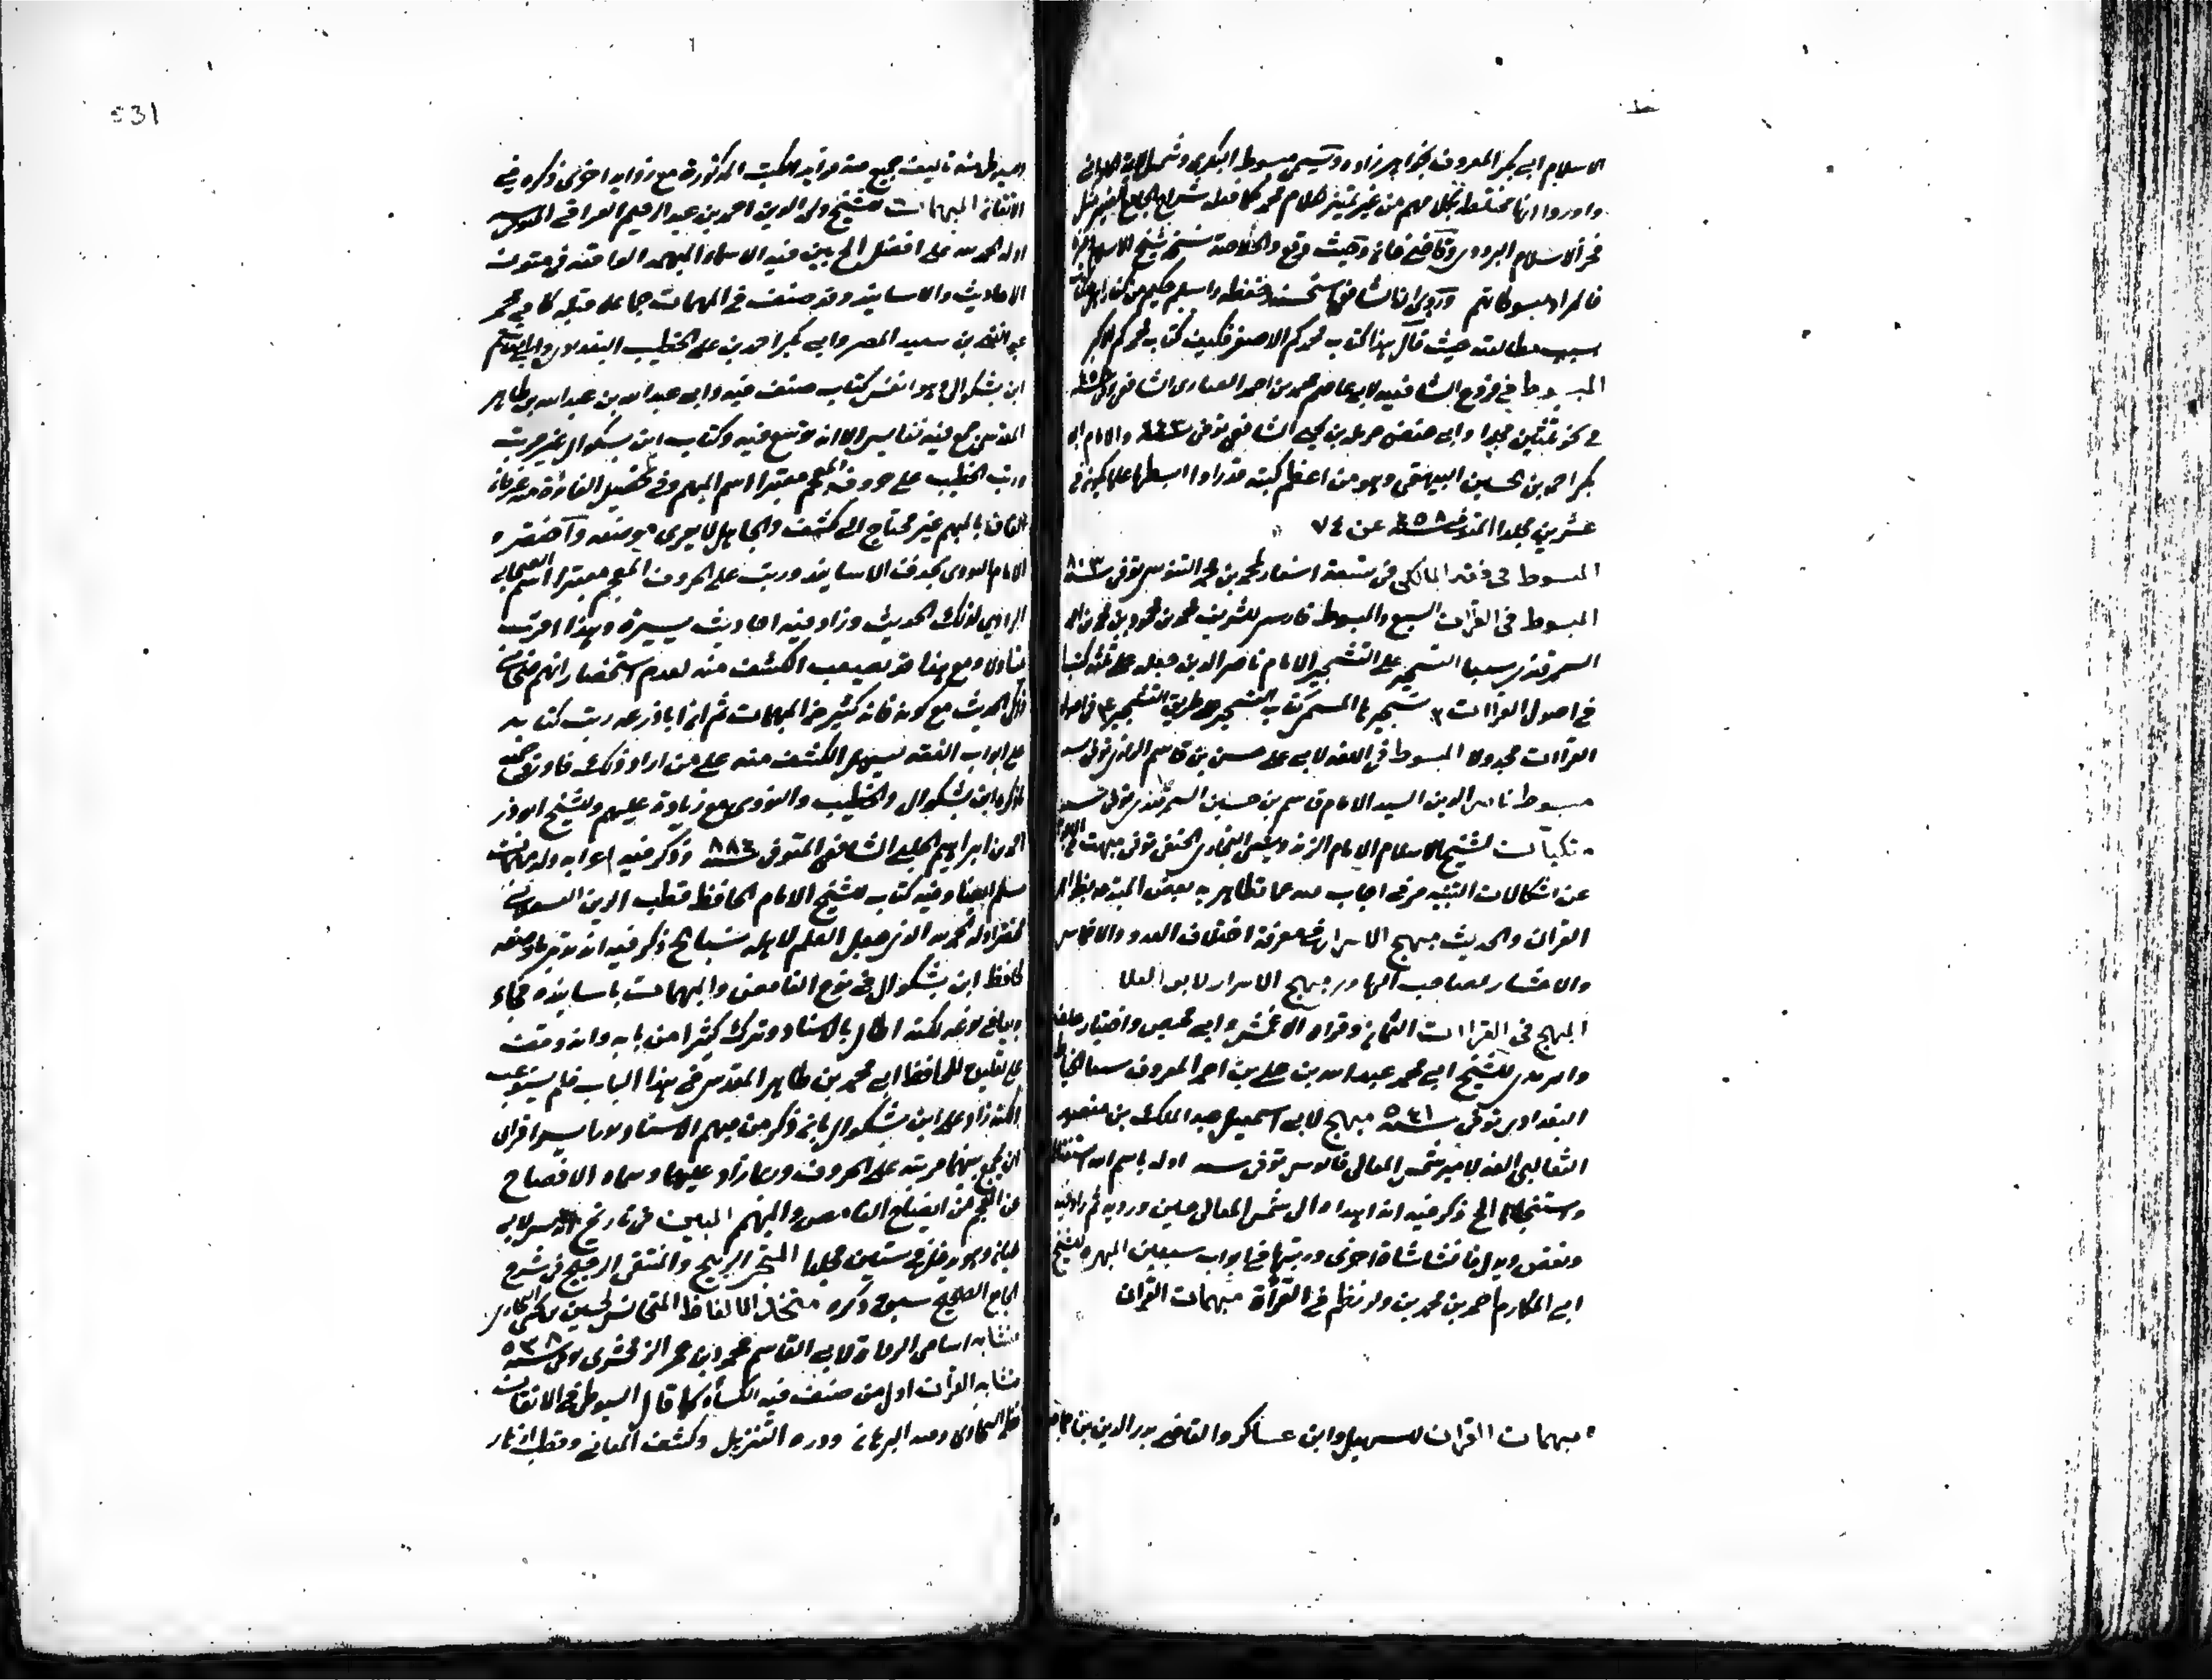 الاسلام ابي بكر المعروف بخواهرزاده ويسمى مبسوط البكرى وشمس الائمة الحلواني
واوردوا انها مختلطا بكلامهم من غير تمييز كلام محمد كما فعله شراح الجامع الصغير مثل
فخر الاسلام البزدوي وقاضي خان وحيث وقع والخلاصة نسخة شيخ الاسلام
فالمراد مبسوطاتهم وروى ان الشافعي استحسنه وحفظه واسلم حكيم من كفار اهل الكتاب
بسبب مطالعته حيث قال هذا كتاب محمدكم الاصغر فكيف كتاب محمدكم الاكبر
المبسوط في فروع الشافعية لابي عاصم محمد بن احمد العبادى الشافعي المتوفى سنة ٤٥٨
في نحو ثلثين مجلدا وابي حفص حرملة بن يحيى الشافعي توفى سنة ٢٤٣ والامام ابو
بكر احمد بن الحسين البيهقي وهو من اعظم كتبه قدرا وابسطها علما يكون في
عشرين مجلدا المتوفى سنة ٤٥٨ عن ٧٤
المبسوط في فقه المالكي في سبعة اسفار لمحمد بن محمد التونسي توفى سنة ٨٠٣
المبسوط في القراآت السبع والمبسوط فارسى للشريف محمد بن محمود بن محمد بن احمد
السمرقندى سبط الامام ناصر الدين جعله على ثلثة كتبا
في اصول القراآت ٢ كتاب التشجير على طريق التشجير ٣ في اصول
القراآت مجدولا المبسوط في اللغة لابي على حسن بن قاسم الرازى توفى سنة
مبسوط ناصر الدين السيد الامام قاسم بن حسين السمرقندى توفى سنة
مبكيات لشيخ الاسلام الامام الزندويستى البخارى الحنفى توفى
عن اشكالات اجاب فيه عما تظاهر به بعض المبتدعة بظواهر
القران والحديث مبهج الاسرار في معرفة اختلاف العدد والاخماس
والاعشار لصاحب الهادى ومبهج الاسرار لابي العلا
المبهج في القراآت الثمان وقراءة الاعمش وابن محيصن واختيار خلف
واليزيدى للشيخ ابي محمد عبد الله بن علي بن احمد المعروف بسبط الخياط
البغدادى توفى سنة ٥٤١ مبهج لابي اسمعيل عبد الملك بن منصور
الثعالبي الفه لامير شمس المعالي قابوس توفى سنه اوله باسم الله استفتاحا
واستنجاحا الخ ذكر فيه انه اهداه الى شمس المعالي حين وروده ثم زاد فيه
ونقص وبدل فانشأ نشاة اخرى ورتبها في ابواب سبعين المبهرة للشيخ
ابي المكارم احمد بن محمد بن ولد نظم في القرأة مبهمات القران
مبهمات القران للسهيلي وابن عساكر والقاضي بدر الدين بن جماعة
والسيوطي فيه تاليف جمع فيه فوايد الكتب المذكورة مع زوايد اخرى ذكره في
الاتقان المبهمات للشيخ ولي الدين احمد بن عبد الرحيم العراقي المتوفى سنه
اوله الحمد لله على افضل الخ بين فيه الاسماء المبهمة الواقعة في متون
الاحاديث والاسانيد وقد صنف في المبهمات جماعة قبله كابي محمد
عبد الغني بن سعيد المصر وابي بكر احمد بن على الخطيب البغدادى وابي القاسم
ابن بشكوال وهو انفس كتاب صنف فيه وابي عبد الله بن عبد الله بن طاهر
المقدسى جمع فيه نفايس الا انه توسع فيه وكتاب ابن بشكوال غير مرتب
ورتب الخطيب على حروف المعجم معتبرا اسم المبهم وفي تحصيل الفائدة منه عسر فان
العارف بالمبهم غير محتاج الى كشف والجاهل لا يدري موضعه واختصره
الامام النووى بحذف الاسانيد ورتب على الحروف المعجم معتبرا اسم الصحابي
الراوى لذلك الحديث وزاد فيه احاديث يسيرة وهذا اقرب
تناولا ومع هذا قد يصعب الكشف منه لعدم استحضار اسم صحابي
ذلك الحديث مع كونه فاته كثير من المبهمات ثم ان ابا زرعه رتب كتابه
على ابواب الفقه ليسهل الكشف منه على من اراد ذلك فاورد جميع
ما ذكره ابن بشكوال والخطيب والنووى مع زيادة عليهم وللشيخ ابو ذر
احمد بن ابراهيم الحلبي الشافعي المتوفى سنة ٨٨٤ وذكر فيه اعرابه وله مبهمات
مسلم ايضا وفيه كتاب للشيخ الامام الحافظ قطب الدين القسطلاني
مختصر اوله الحمد لله الذى جعل العلم لاهله نسبا الخ ذكر فيه انه وقف على ما وضعه
الحافظ ابن بشكوال في نوع الغامض والمبهمات باسانيده فجاء
في نوعه لكنه اطال بالاسناد وترك كثيرا من بابه وانه وقف
على تعليق للحافظ ابي محمد بن طاهر المقدسى في هذا الباب فلم يستوعب
لكنه زاد على ابن بشكوال بانه ذكر من مبهم الاسناد فراى
ان يجمع بينهما مرتبة على الحروف وربما زاد عليهما وسماه الافصاح
عن المعجم من ايضاح الغامض والمبهم المبين في تاريخ الاندلس لابي
حيان وهو يدخل في ستين مجلدا المتجر الربيح والمنتقى الرجيح في شرح
الجامع الصحيح سبق ذكره متخير الالفاظ
متشابه اسامى الرواة لابي القاسم محمود بن عمر الزمخشرى توفى سنة ٥٣٨
متشابه القران اول من صنف فيه الكسائى كما قال السيوطي في الاتقان
نظم السخاوى ومنه البرهان ودرة التنزيل وكشف المعاني وقطف الازهار
531